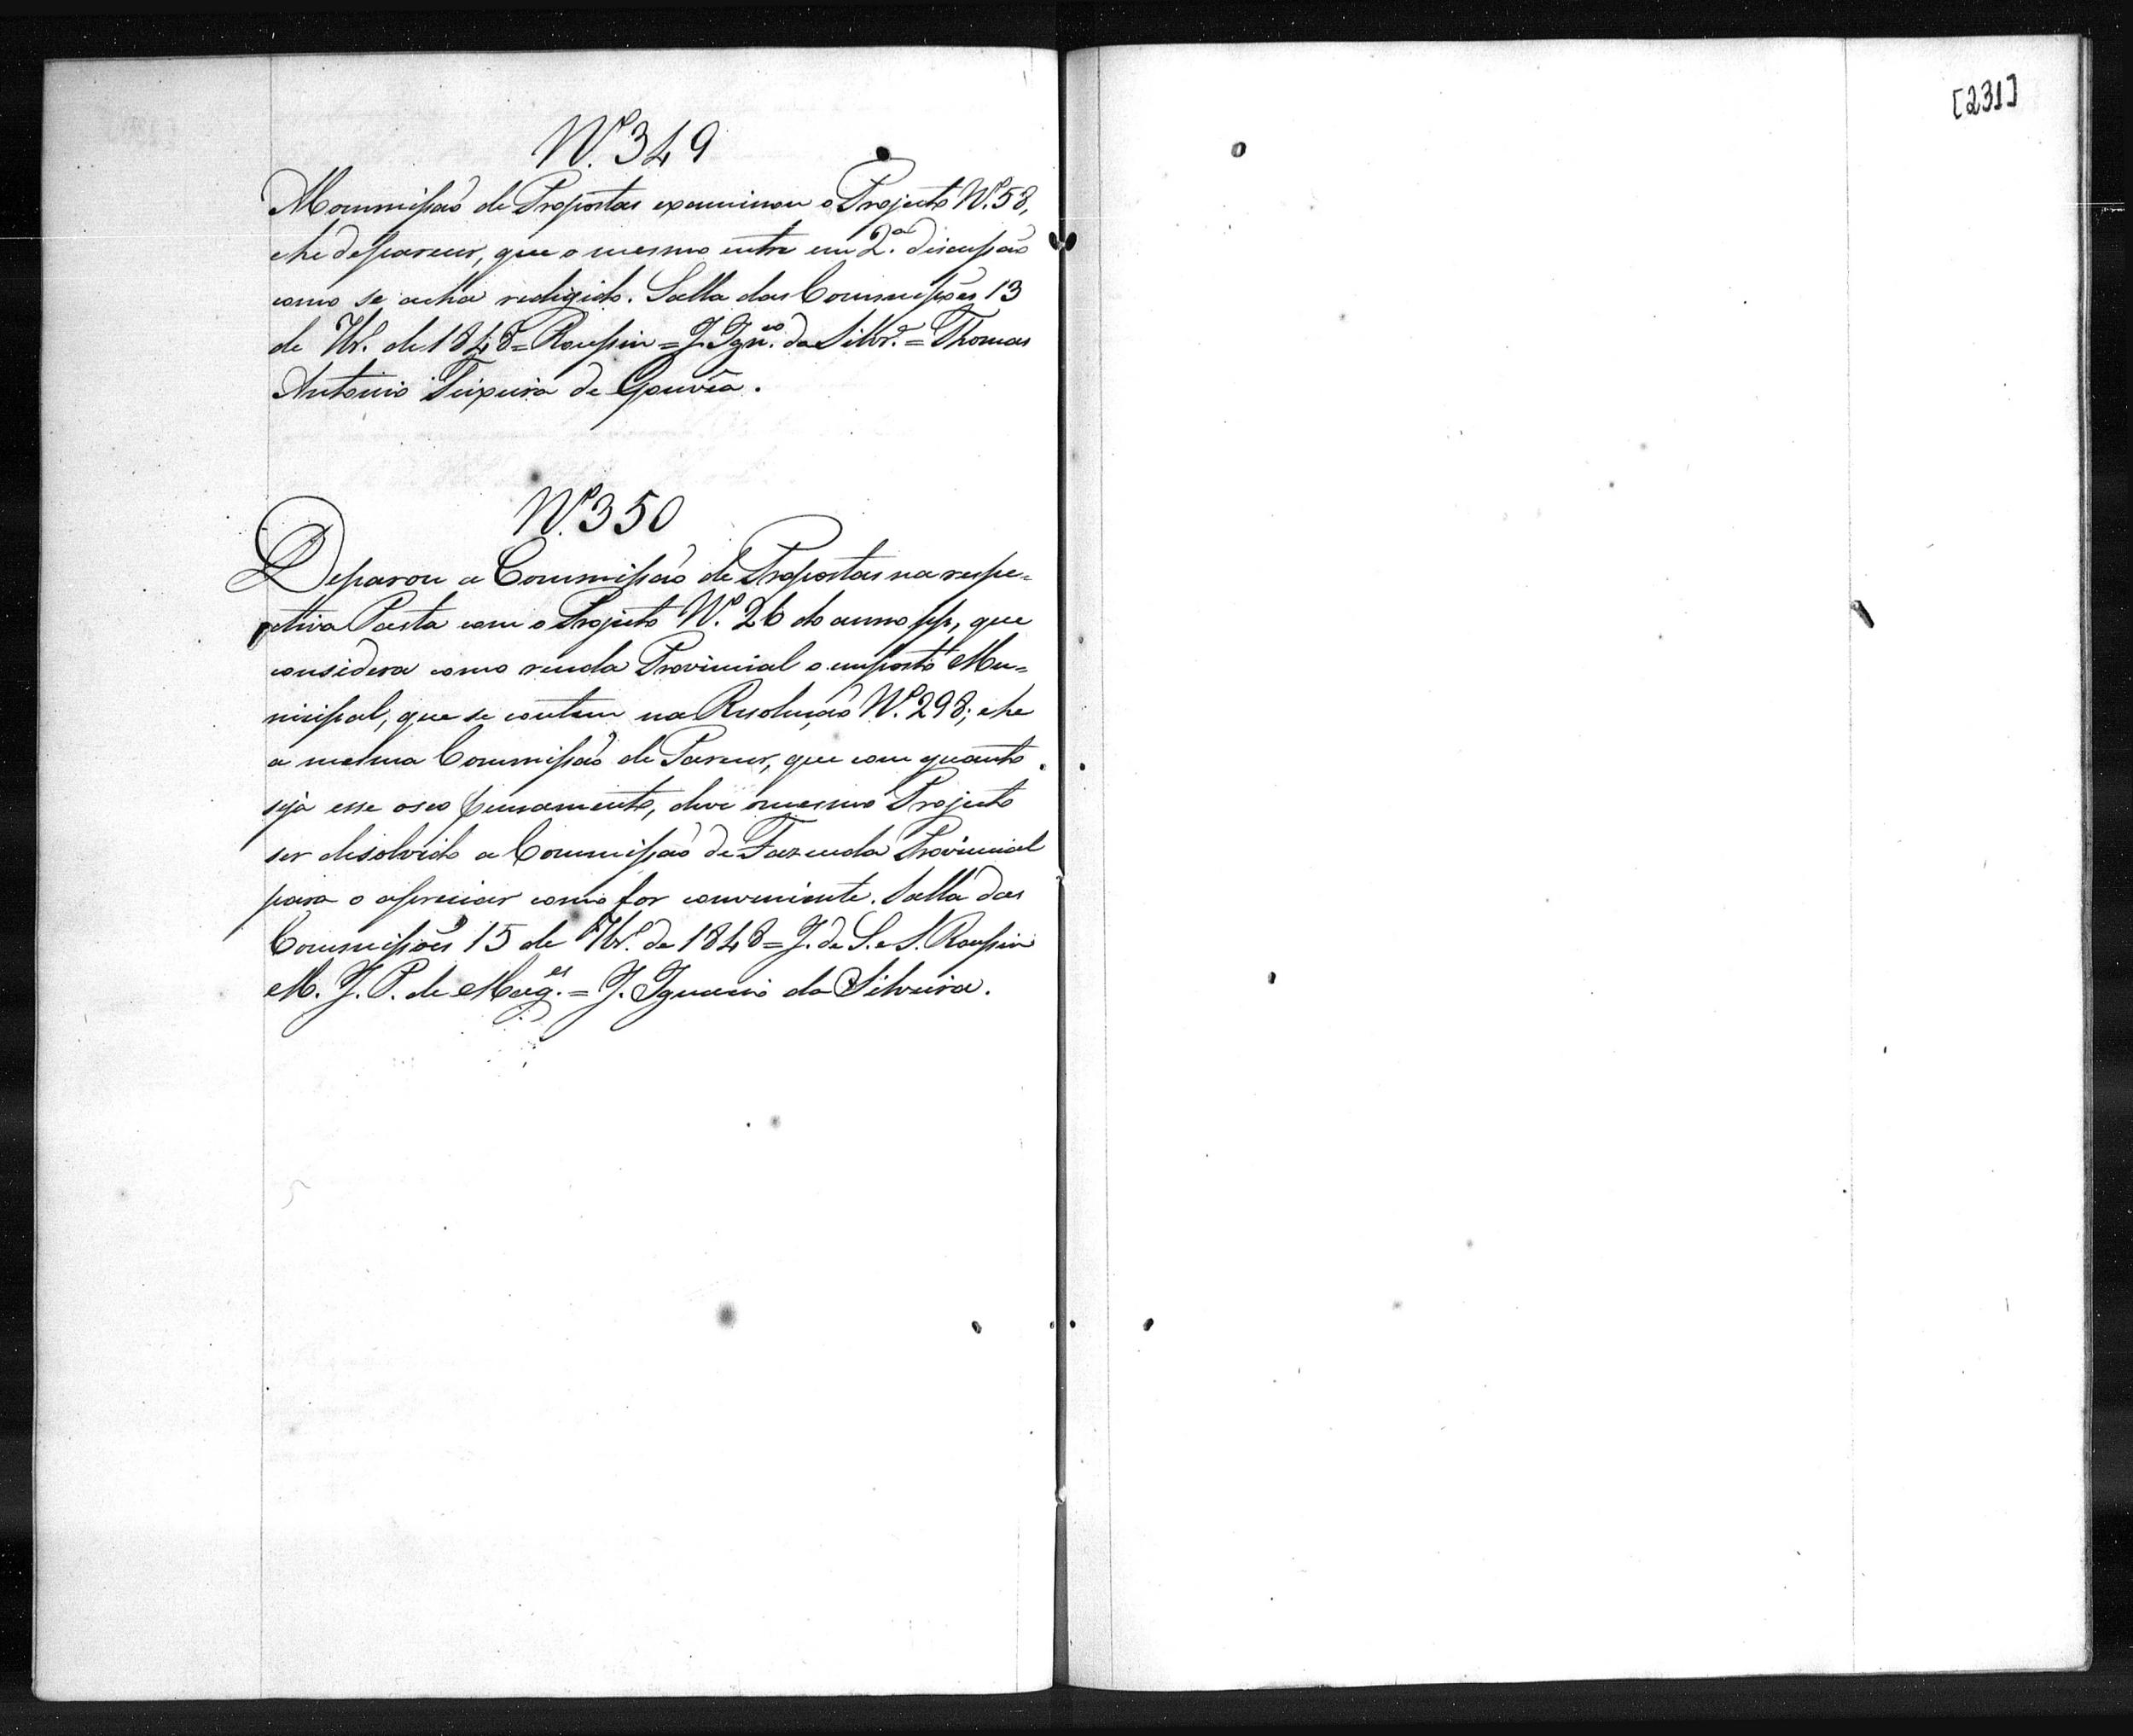 Nº. 349
A Commissão de Propostas examinou o Projecto Nº. 58,
e he de parecer, que o mesmo entre em 2.ª discussão
como se acha redigido. Salla das Commissões 13
de de 1848 = Roussin = J. Ign.co da Silvr.ª = Thomas
Antonio Teixeira de Gouvêa.
Nº. 350
Deparou a Commissão de Propostas na respe=
ctiva Pasta com o Projecto Nº. 26 do anno pp, que
considera como renda Provincial o imposto Mu=
nicipal, que se contem na Resolução Nº. 298; e he
a mesma Commissão de Parecer, que com quanto
seja esse o seo pensamento, deve o mesmo Projecto
ser desolvido a Commissão de Fazenda Provincial
para o apreciar como for conveniente. Salla das
Commissões 15 de de 1848 = J. de S. e S. Roussin
M. J. P. de Mag.es = J. Ignacio da Silveira.
[231]